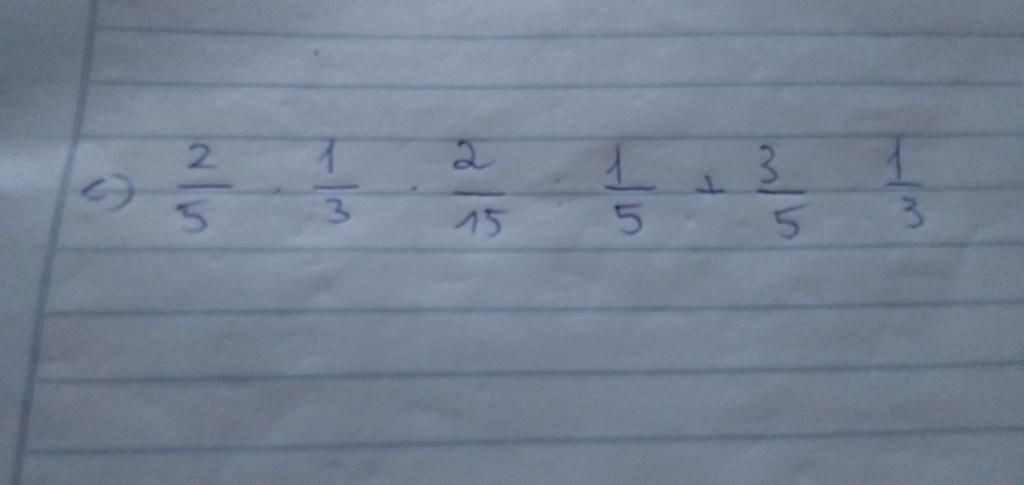 c) 2/5 · 1/3 · 2/15 : 1/5 + 3/5 · 1/3